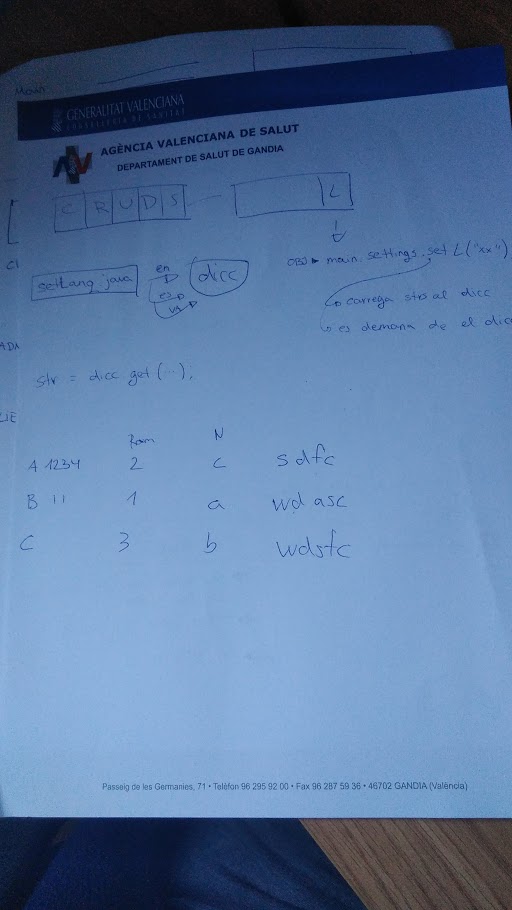 Main
GENERALITAT VALENCIANA
CONSELLERIA DE SANITAT
AGÈNCIA VALENCIANA DE SALUT
DEPARTAMENT DE SALUT DE GANDIA
C R U D S
L
OBJ main.settings.set L("xx")
cl
setLang.java
en
es
va
dicc
carrega strs al dicc
es demana de el dicc
ADA
str = dicc.get(...);
LIE
Ram N
A 1234 2 c sdfc
B 11 1 a wdasc
C 3 b wdsfc
Passeig de les Germanies, 71 • Telèfon 96 295 92 00 • Fax 96 287 59 36 • 46702 GANDIA (València)